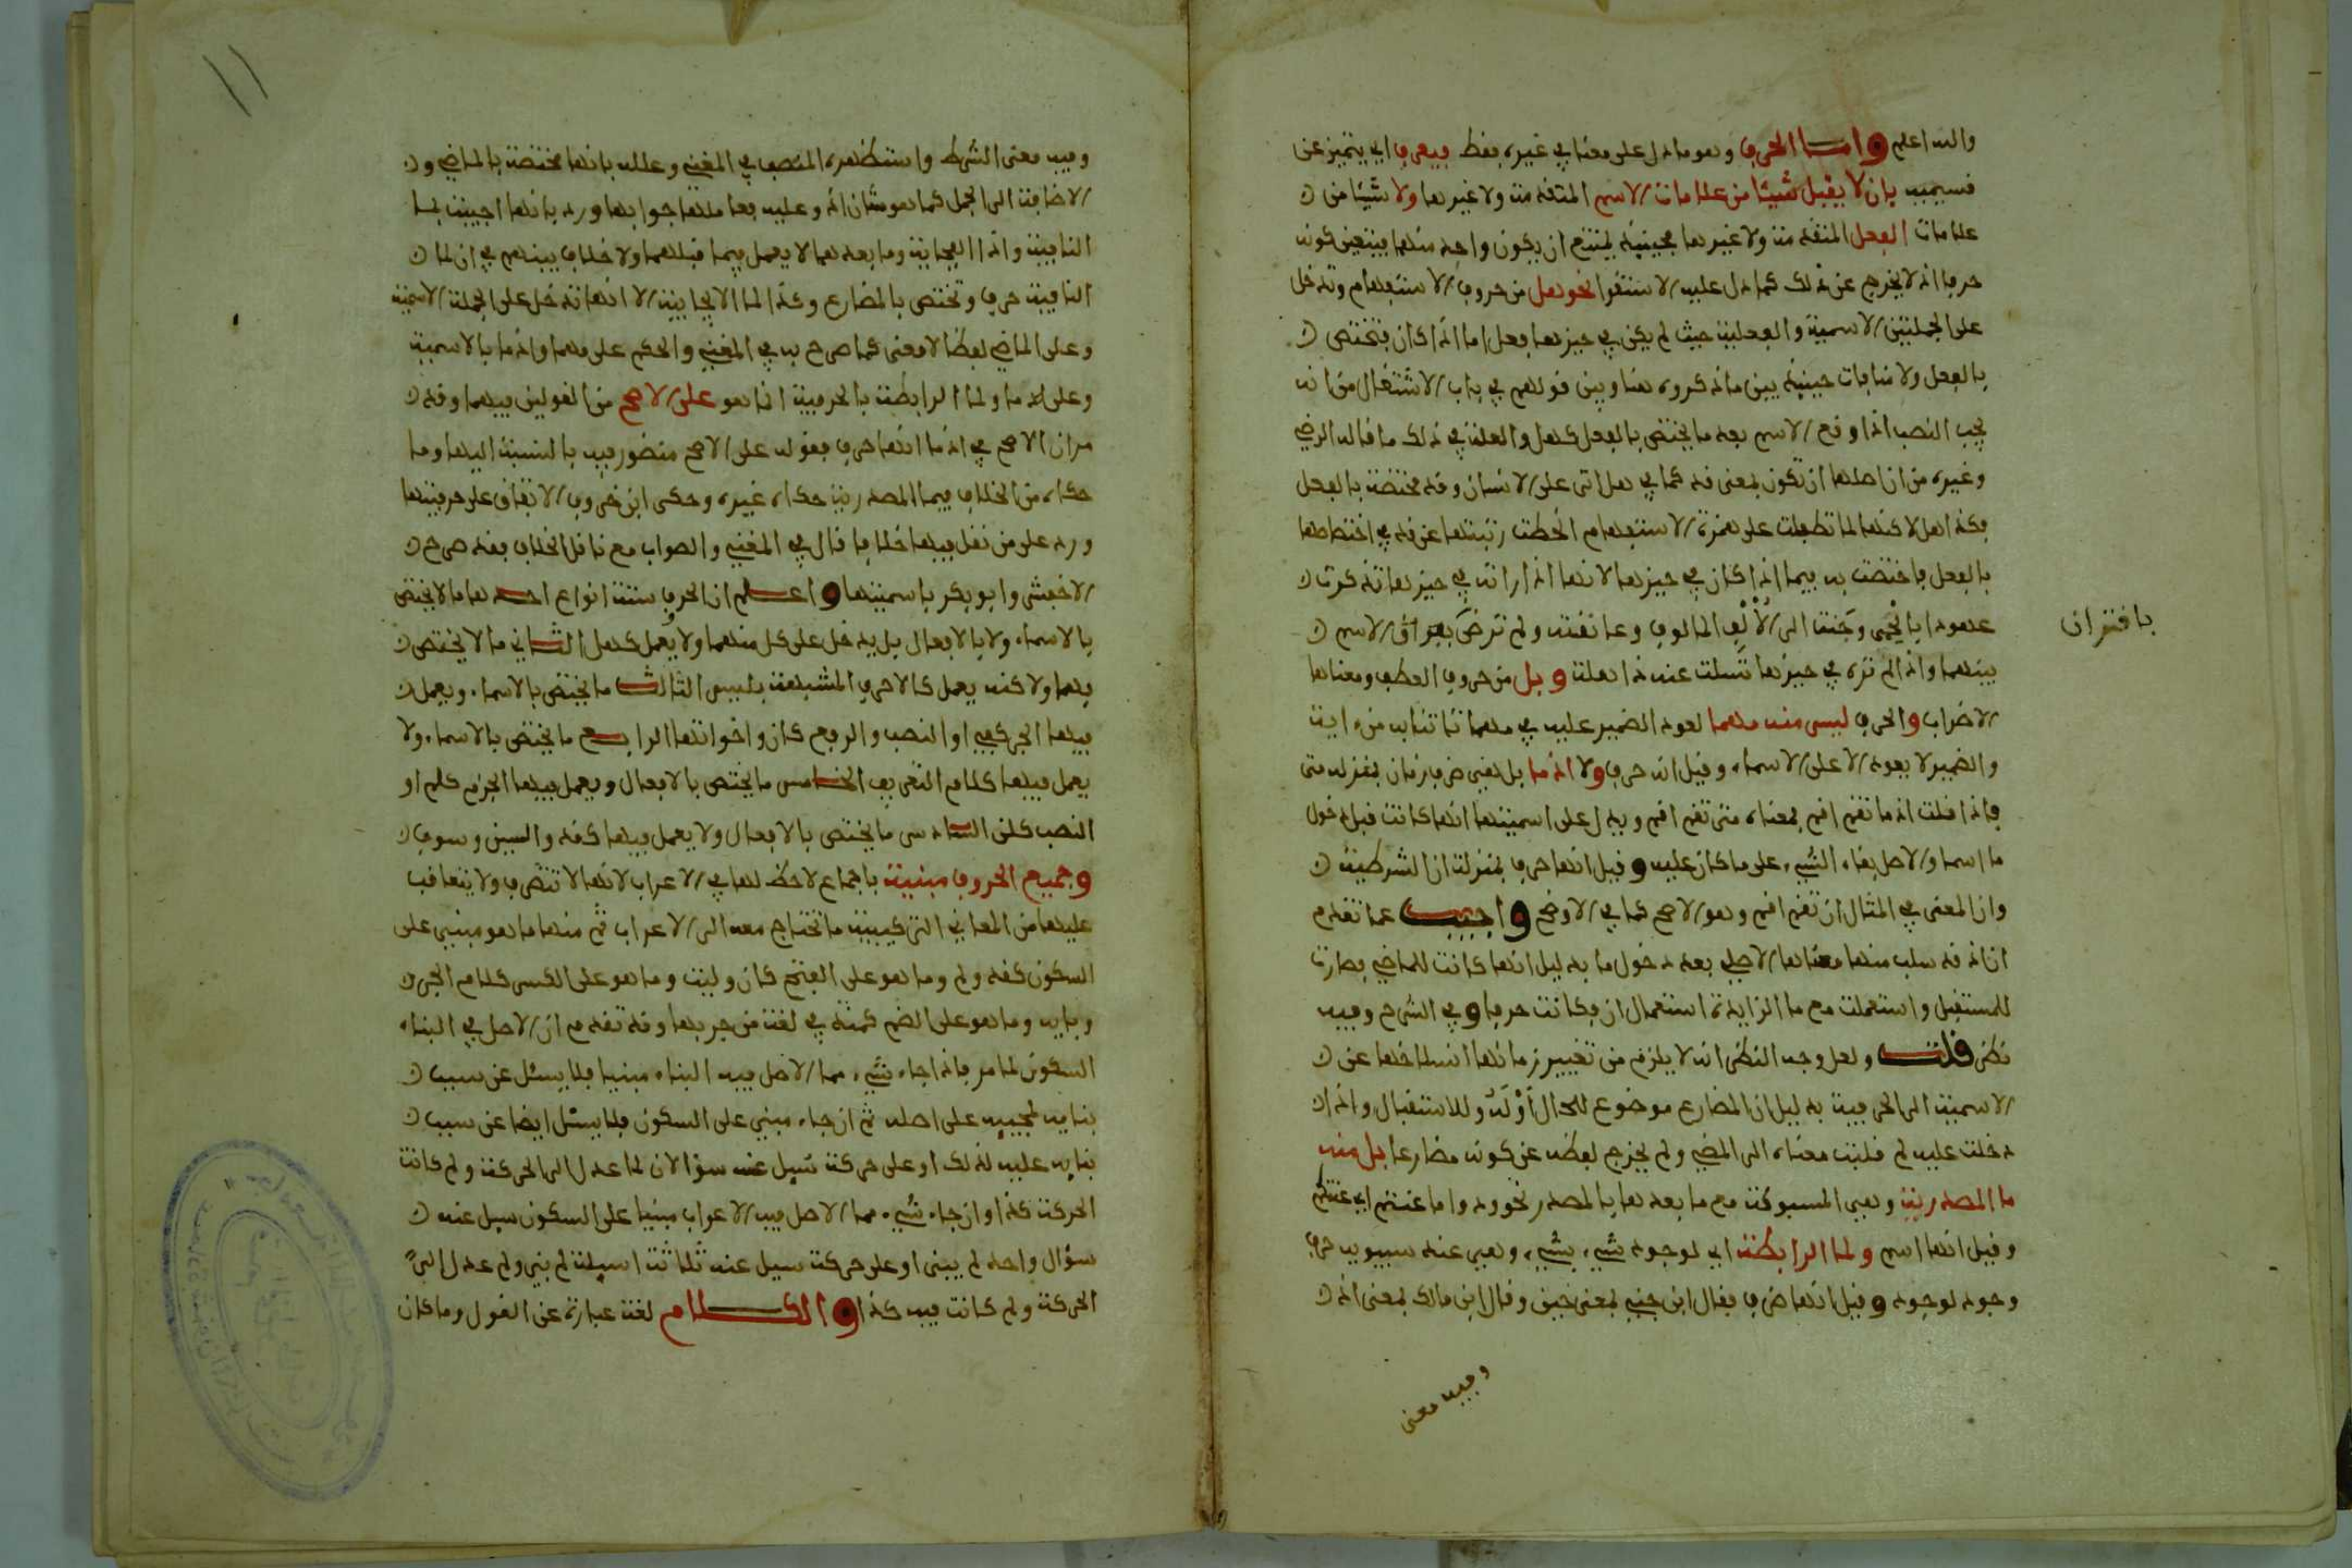 والله اعلم واما الحرف وهو ما دل على معنا في غيره بفط فيعرف اي يتميز عن
فسيميه بان لا يقبل شيئا من علامات الاسم المتقدمة ولا غيرها ولا شيئا من
علامات الفعل المتقدمة ولا غيرها فحينيذ يمتنع ان يكون واحد منهما فيتعين كونه
حرفا اذ لا يخرج عن ذلك كما دل عليه الاستقرا نحو هل من حروف الاستفهام وتدخل
على الجملتين الاسمية والفعلية حيث لم يكن في حيزها فعل اما اذا كان فتختص
بالفعل ولا منافات حينيذ بين ما ذكروه هنا وبين قولهم في باب الاشتغال من انه
يجب النصب اذا وقع الاسم بعد ما يختص بالفعل كهل والعلة في ذلك ما قاله الرضي
وغيره من ان اصلها ان تكون بمعنى قد كما في هل اتى على الانسان وقد مختصة بالفعل
فكذا هل لاكنها لما تطفلت على همزة الاستفهام انحطت رتبتها عن قد في اختصاصها
بالفعل فاختصت به فيما اذا كان في حيزها لانها اذا راته في حيزها تذكرت
عهودا بالحمى وحنت الى الالف المالوف وعانقته ولم ترض بفراق الاسم
بافتران
بينهما واذا لم تره في حيزها تسلت عنه ذاهلة وبل من حروف العطف ومعناها
الاضراب والحرف ليس منه مهما لعود الضمير عليه في مهما تاتنا به من ءاية
والضمير لا يعود الا على الاسماء وقيل انه حرف ولا اذما بل هي ظرف زمان بمنزله متى
فاذا قلت اذما تقم اقم بمعناه متى تقم اقم ويدل على اسميتها انها كانت قبل دخول
ما اسما والاصل بقاء الشيء على ما كان عليه وقيل انها حرف بمنزلة ان الشرطية
وان المعنى في المثال ان تقم اقم وهو الاصح كما في الاوضح واجيب عما تقدم
ان اذ قد سلب منها معناها الاصلي بعد دخول ما بدليل انها كانت للماضي فصارت
للمستقبل واستعملت مع ما الزايدة استعمال ان فكانت حرفا وفي الشرح وفيه
نظر قلت ولعل وجه النظر انه لا يلزم من تغيير زمانها انسلاخها عن
الاسمية الى الحرفية بدليل ان المضارع موضوع للحال اولا وللاستقبال واذا
دخلت عليه لم قلبت معناه الى المضي ولم يخرج لفظه عن كونه مضارعا بل منه
ما المصدرية وهي المسبوكة مع ما بعدها بالمصدر نحو ودوا ما عنتم اي عنتكم
وقيل انها اسم ولما الرابطة اي لوجود شيء بشيء وهي عند سيبويه حرف
وجود لوجود وقيل انها ظرف فقال ابن جني بمعنى حين وقال ابن مالك بمعنى اذ
وفيه معنى
١١
وفيه معنى الشرط واستظهره المصنف في المغني وعلله بانها مختصة بالماضي و
الاضافة الى الجمل كما هو شان اذ وعليه فعاملها جوابها ورد بانها اجيبت بما
النافية واذا الفجاية وما بعدهما لا يعمل فيما قبلهما ولا خلاف بينهم في ان لما
النافية حرف وتختص بالمضارع وكذا لما الايجابية الا انها تدخل على الجملة الاسمية
وعلى الماضي لفظا لا معنى كما صرح به في المغني والحكم على مهما واذما بالاسمية
وعلى ما ولما الرابطة بالحرفية انما هو على الاصح من القولين فيهما وقد
مر ان الاصح في اذما انها حرف فقوله على الاصح منظور فيه بالنسبة اليها وما
حكاه من الخلاف فيما المصدرية حكاه غيره وحكى ابن خروف الاتفاق على حرفيتها
ورد على من نقل فيها خلافا قال في المغني والصواب مع ناقل الخلاف فقد صرح
الاخفش وابو بكر باسميتها واعلم ان الحرف ستة انواع احدها ما لا يختص
بالاسماء ولا بالافعال بل يدخل على كل منهما ولا يعمل كهل الثاني ما لا يختص
بهما ولاكنه يعمل كالاحرف المشبهة بليس الثالث ما يختص بالاسماء ويعمل
فيها الجر كفي او النصب والرفع كان واخواتها الرابع ما يختص بالاسماء ولا
يعمل فيها كلام التعريف الخامس ما يختص بالافعال ويعمل فيها الجزم كلم او
النصب كلن السادس ما يختص بالافعال ولا يعمل فيها كقد والسين وسوف
وجميع الحروف مبنية باجماع لا حظ لها في الاعراب لانها لا تتصرف ولا يتعاقب
عليها من المعاني التركيبية ما تحتاج معه الى الاعراب ثم منها ما هو مبني على
السكون كقد ولم وما هو على الفتح كان وليت وما هو على الكسر كلام الجر
وبايه وما هو على الضم كمنذ في لغة من جر بها وقد تقدم ان الاصل في البناء
السكون لما مر فاذا جاء شيء مما الاصل فيه البناء مبنيا فلا يسئل عن سبب
بنايه لمجييه على اصله ثم ان جاء مبني على السكون فلا يسئل ايضا عن سبب
بنايه عليه لذلك او على حركة سيل عنه سؤالان لما عدل الى الحركة ولم كانت
الحركة كذا وان جاء شيء مما الاصل فيه الاعراب مبنيا على السكون سيل عنه
سؤال واحد لم يبنى او على حركة سيل عنه ثلاثة اسيلة لم بني ولم عدل الى
الحركة ولم كانت فيه كذا والكلام لغة عبارة عن القول وما كان